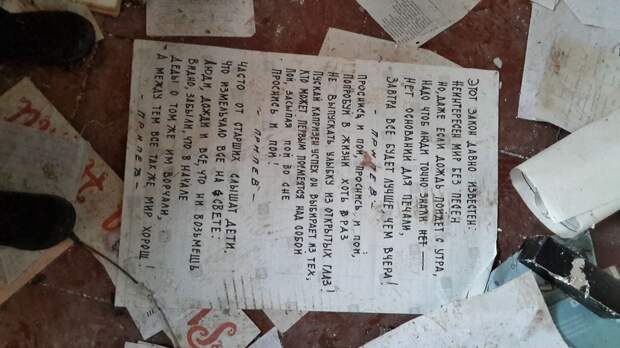 ЭТОТ ЗАКОН ДАВНО ИЗВЕСТЕН:
НЕИНТЕРЕСЕН МИР БЕЗ ПЕСЕН
НО, ДАЖЕ ЕСЛИ ДОЖДЬ ПОЙДЕТ С УТРА,
НАДО ЧТОБ ЛЮДИ ТОЧНО ЗНАЛИ НЕТ —
НЕТ ОСНОВАНИЙ ДЛЯ ПЕЧАЛИ,
ЗАВТРА ВСЕ БУДЕТ ЛУЧШЕ ЧЕМ ВЧЕРА!
- ПРИПЕВ -
ПРОСНИСЬ И ПОЙ, ПРОСНИСЬ И ПОЙ,
ПОПРОБУЙ В ЖИЗНИ ХОТЬ РАЗ
НЕ ВЫПУСКАТЬ УЛЫБКУ ИЗ ОТКРЫТЫХ ГЛАЗ!
ПУСКАЙ КАПРИЗЕН УСПЕХ ОН ВЫБИРАЕТ ИЗ ТЕХ,
КТО МОЖЕТ ПЕРВЫМ ПОСМЕЯТСЯ НАД СОБОЙ
ПОЙ, ЗАСЫПАЯ ПОЙ ВО СНЕ
ПРОСНИСЬ И ПОЙ!
- ПРИПЕВ -
ЧАСТО ОТ СТАРШИХ СЛЫШАТ ДЕТИ,
ЧТО ИЗМЕЛЬЧАЛО ВСЕ НА СВЕТЕ:
ЛЮДИ, ДОЖДИ И ВСЕ, ЧТО НИ ВОЗЬМЕШЬ
ВИДНО, ЗАБЫЛИ, ЧТО В НАЧАЛЕ
ДЕДЫ О ТОМ ЖЕ ИМ ВОРЧАЛИ,
А МЕЖДУ ТЕМ ВСЕ ТАКЖЕ МИР ХОРОШ!
- ПРИПЕВ -